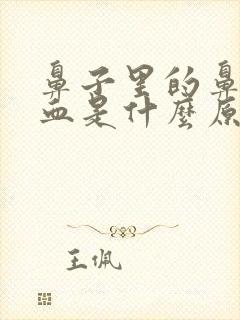 鼻子里的鼻
血是什麼原
王佩